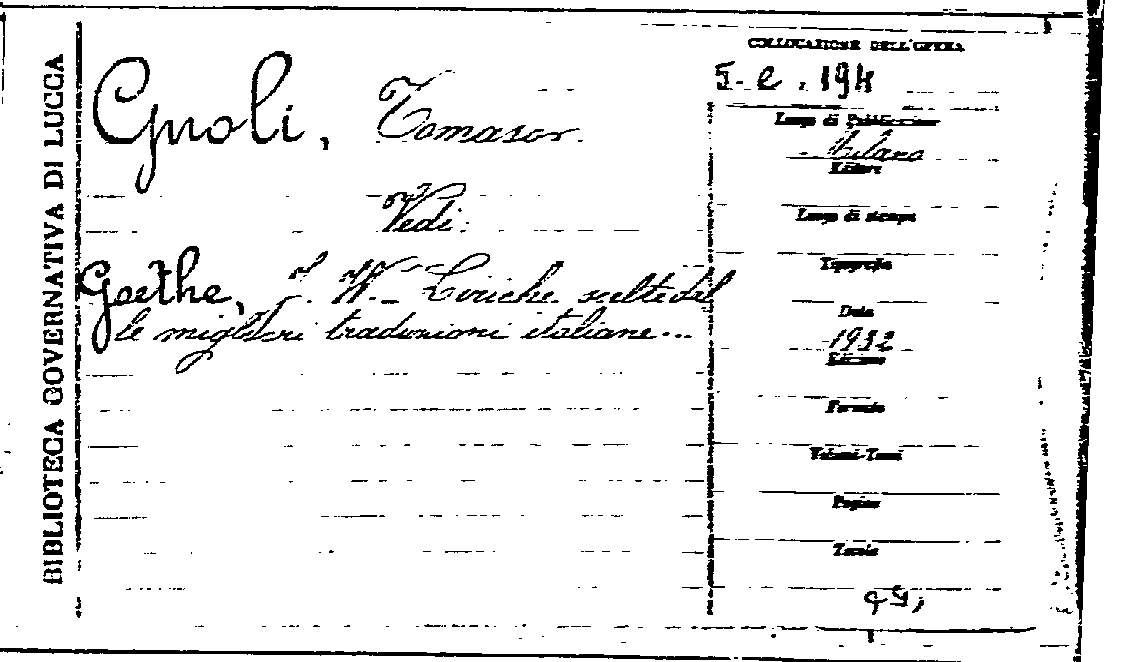 BIBLIOTECA GOVERNATIVA DI LUCCA
Gnoli, Tomaso
Vedi:
Goethe, J. W. - Liriche scelte dal
le migliori traduzioni italiane...
COLLOCAZIONE DELL'OPERA
5. e. 194
Luogo di Pubblicazione
Milano
Editore
Luogo di stampa
Tipografia
Data
1932
Edizione
Formato
Volumi-Tomi
Pagine
Tavole